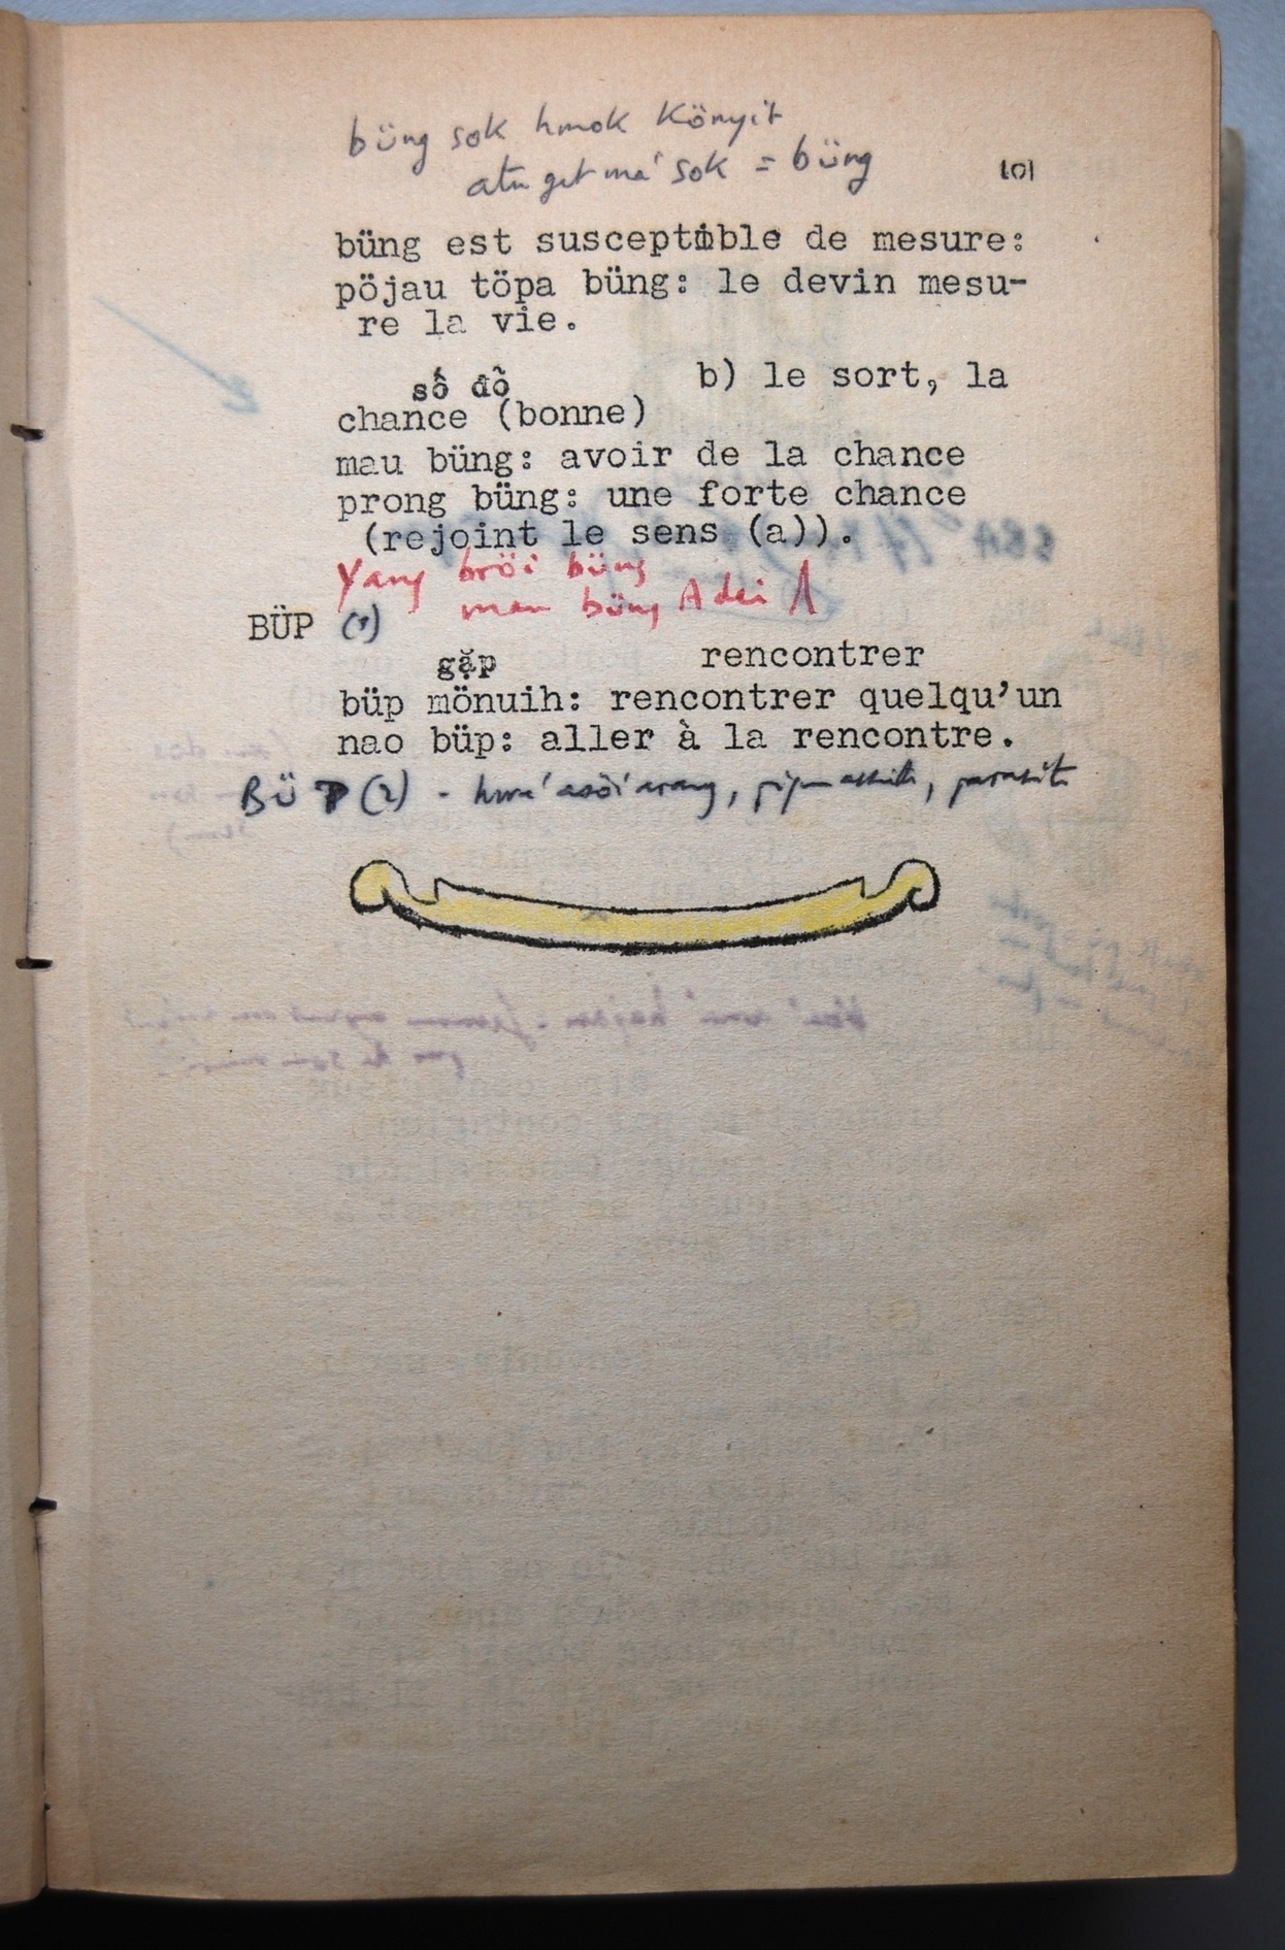 büng sok hmok Könyit
atŭ get ma' sok = büng
101
büng est susceptible de mesure:
pöjau töpa büng: le devin mesu-
re la vie.
số đỏ b) le sort, la
chance (bonne)
mau büng: avoir de la chance
prong büng: une forte chance
(rejoint le sens (a)).
Yang bröi büng
mau büng Adei
BÜP (1)
gặp rencontrer
büp mönuih: rencontrer quelqu'un
nao büp: aller à la rencontre.
BÜP (2) - hwa' asöi arang, pique assiette, parasite